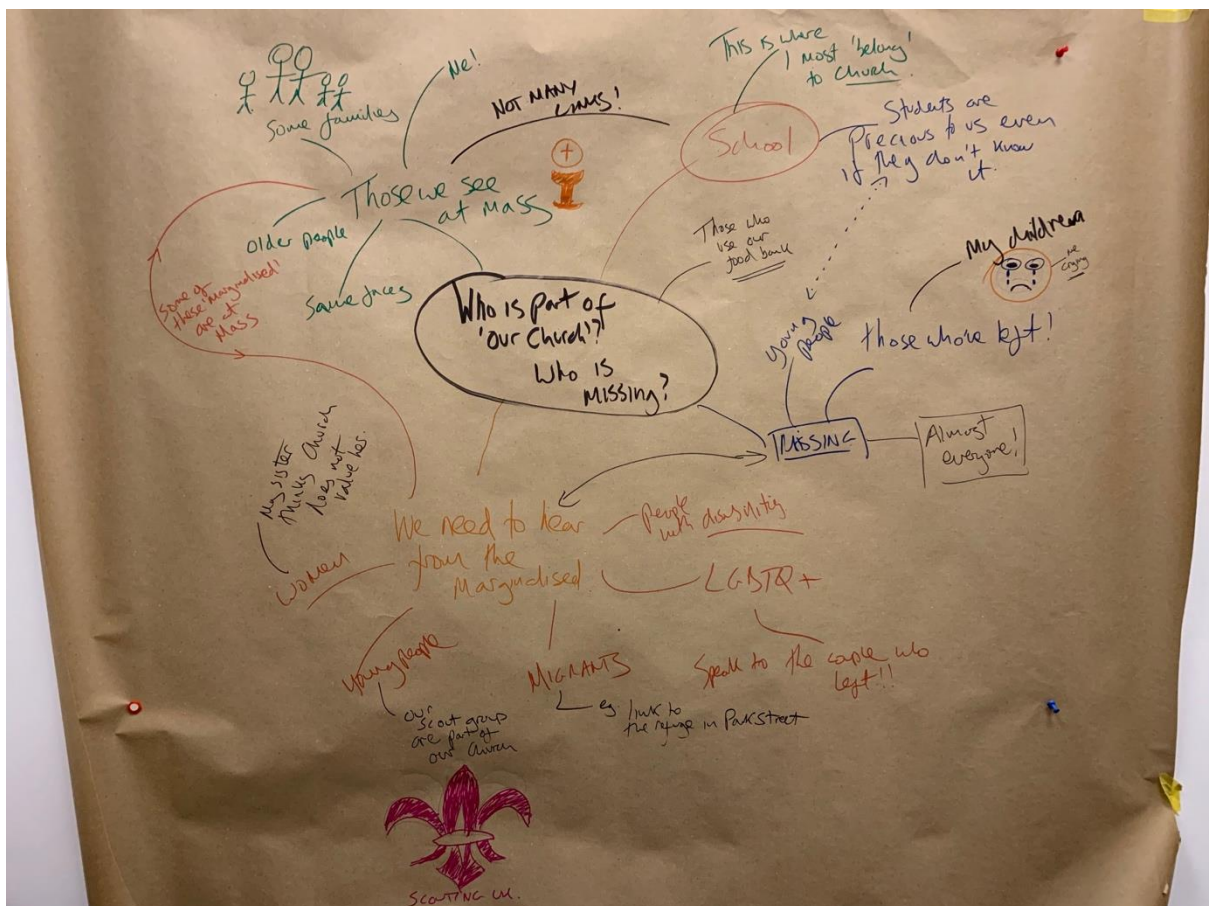 Some families
Me!
NOT MANY
LINKS!
This is where
I most 'belong'
to Church.
School
Students are
Precious to us even
if they don't know
it.
Those we see
at Mass
older people
Same faces
Some of
these 'marginalised'
are at
Mass
Those who
use our
food bank
My children
me
crying
Who is part of
'our Church'?
Who is
Missing?
young
people
those who've left!
MISSING
Almost
everyone!
My sister
thinks Church
does not
value her.
Women
We need to hear
from the
Marginalised.
people
with disabilities
LGBTQ+
Speak to the couple who
left!!
young people
our
scout group
are part of
our Church
SCOUTING UK.
MIGRANTS
eg. link to
the refuge in Park Street